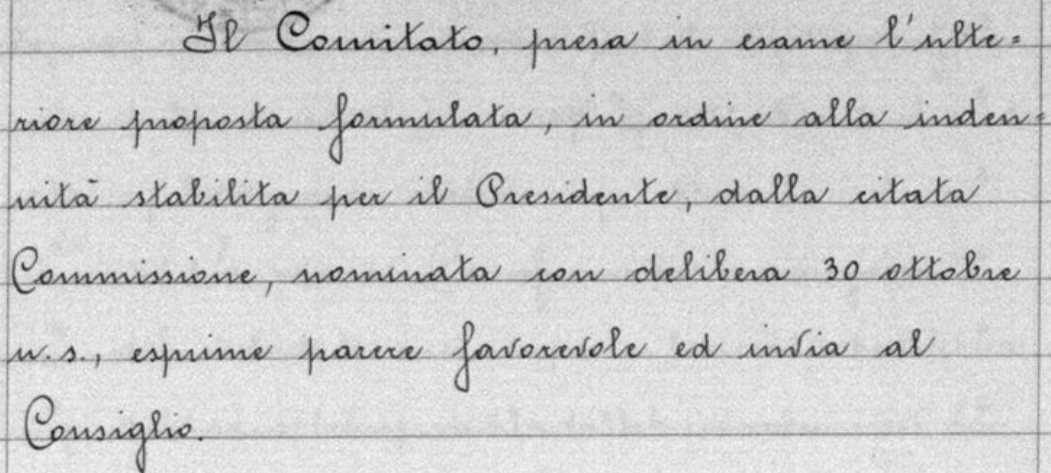 Il Comitato, presa in esame l'ulte=
riore proposta formulata, in ordine alla inden=
nità stabilita per il Presidente, dalla citata
Commissione, nominata con delibera 30 ottobre
u.s., esprime parere favorevole ed invia al
Consiglio.